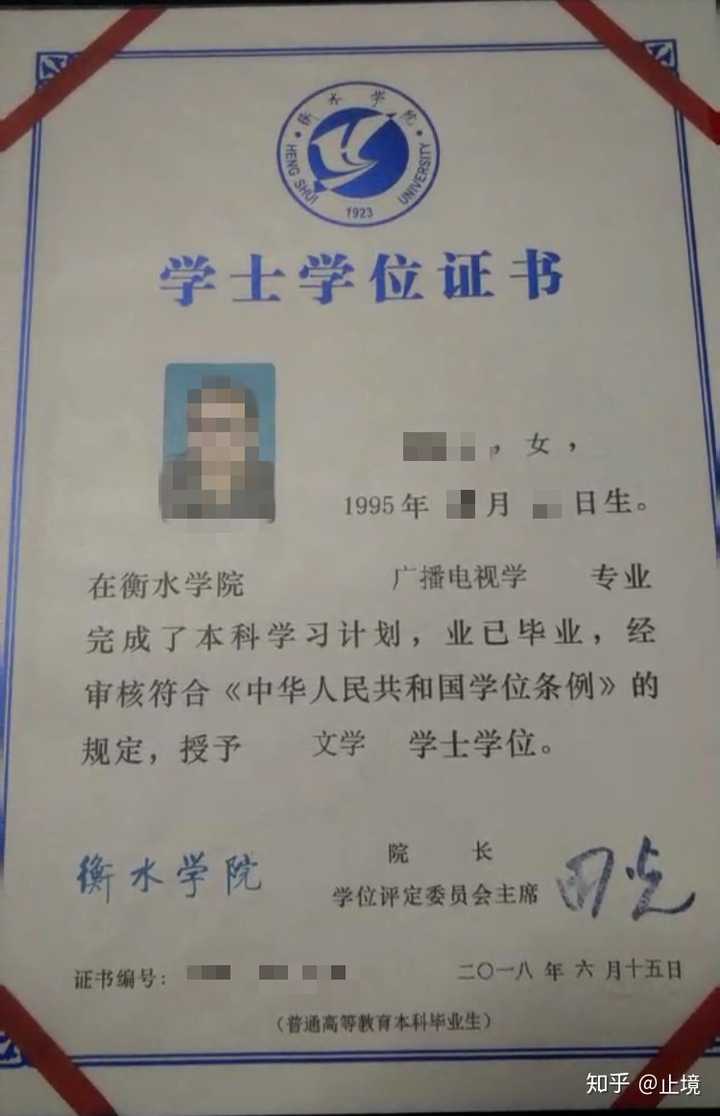 衡水学院
HENG SHUI UNIVERSITY
1923
学士学位证书
，女，
1995年 月 日生。
在衡水学院 广播电视学 专业
完成了本科学习计划，业已毕业，经
审核符合《中华人民共和国学位条例》的
规定，授予 文学 学士学位。
院 长
衡水学院 学位评定委员会主席
证书编号： 二〇一八年六月十五日
（普通高等教育本科毕业生）
知乎 @止境